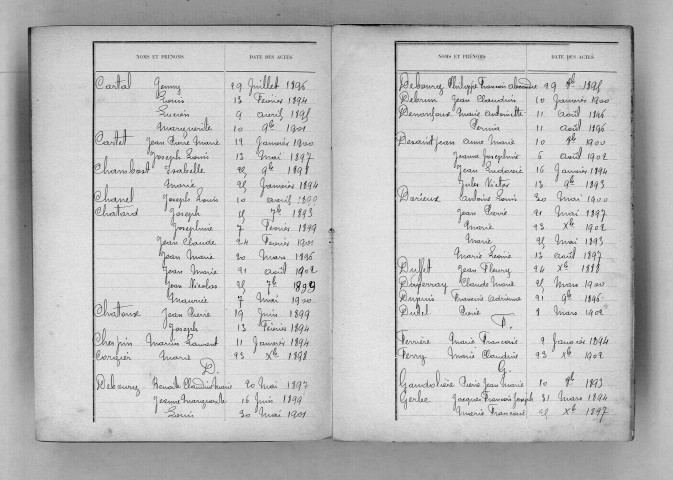 NOMS ET PRÉNOMS DATE DES ACTES
Cartal Jenny 29 Juillet 1896
Louis 13 Février 1894
Lucien 9 avril 1895
Marguerite 10 9bre 1901
Cartet Jean Pierre Marie 19 Janvier 1900
Joseph Louis 13 Mai 1897
Chambost Isabelle 25 9bre 1898
Marie 25 Janvier 1894
Chanel Joseph Louis 10 avril
Chatard Joseph 25 7bre 1893
Joséphine 7 Février 1899
Jean Claude 24 Février 1901
Jean Marie 20 Mars 1896
Jean Marie 21 août 1902
Jean Nicolas 25 7bre 1899
Maurice 7 Mai 1900
Chatoux Jean Pierre 19 Juin 1899
Joseph 13 Février 1894
Martin Laurent 11 Janvier 1894
Marie 23 Xbre 1898
D.
Debourg Benoit Claudius Marie 20 Mai 1897
Jeanne Marguerite 16 Juin 1899
Louis 30 Mai 1901
NOMS ET PRÉNOMS DATE DES ACTES
Debourg Philippe François 29 8bre 1895
Debrun Jean Claudius 10 Janvier 1900
Marie Antoinette 11 août 1896
11 août 1896
Desaintjean Anne Marie 10 8bre 1900
Jeanne Joséphine 6 août 1902
Jean Ludovic 16 Janvier 1894
Jules Victor 13 9bre 1893
Derieux Antoine Louis 30 Mai 1900
Jean Pierre 21 Mai 1897
Marie 23 Xbre 1902
Marie 25 Mai 1893
Marie Léonie 13 août 1897
Duffet Jean Fleury 24 Xbre 1898
Duperray Claude Marie 25 Mars 1900
Dupuis Francis Adrienne 21 9bre 1896
8 Mars 1902
F.
Ferrière Marie Françoise 9 Janvier 1894
Ferry Marie Claudine 23 Xbre 1902
G.
Gaudolière Pierre Jean Marie 10 8bre 1893
Gerbe Jacques François Joseph 31 Mars 1894
Marie 25 Xbre 1897